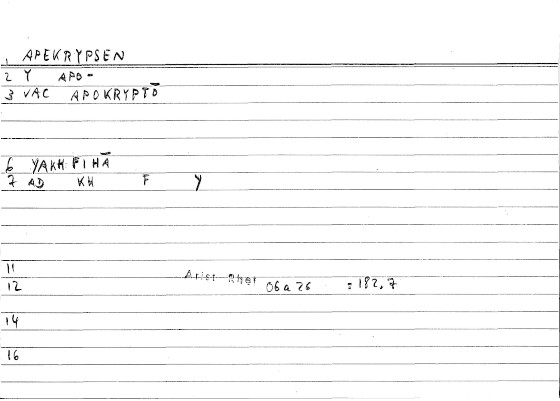 1 APEKRYPSEN
2 Y APO-
3 VAC APOKRYPTŌ
6 YAKHFIHĀ
7 AD KH F Y
11
12 Arist Rhet 06a26 = 182,7
14
16